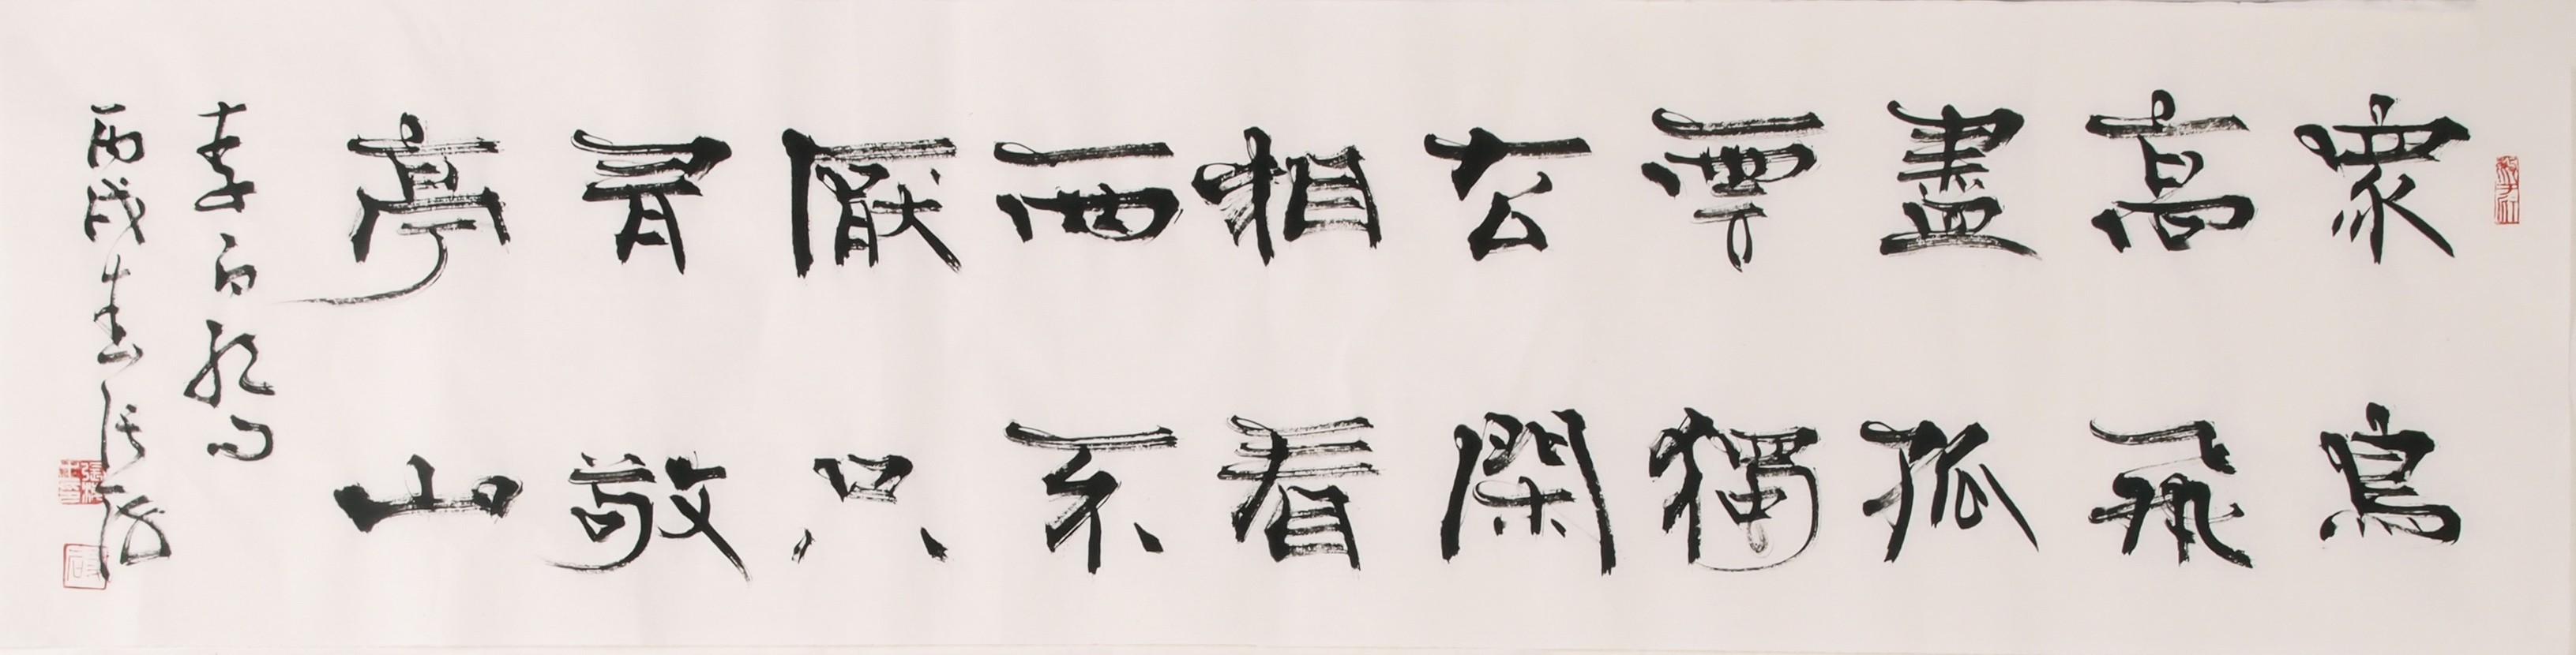 眾鳥
高飛
盡孤
雲獨
去閑
相看
兩不
厭只
有敬
亭山
李白絕句
丙戌春張